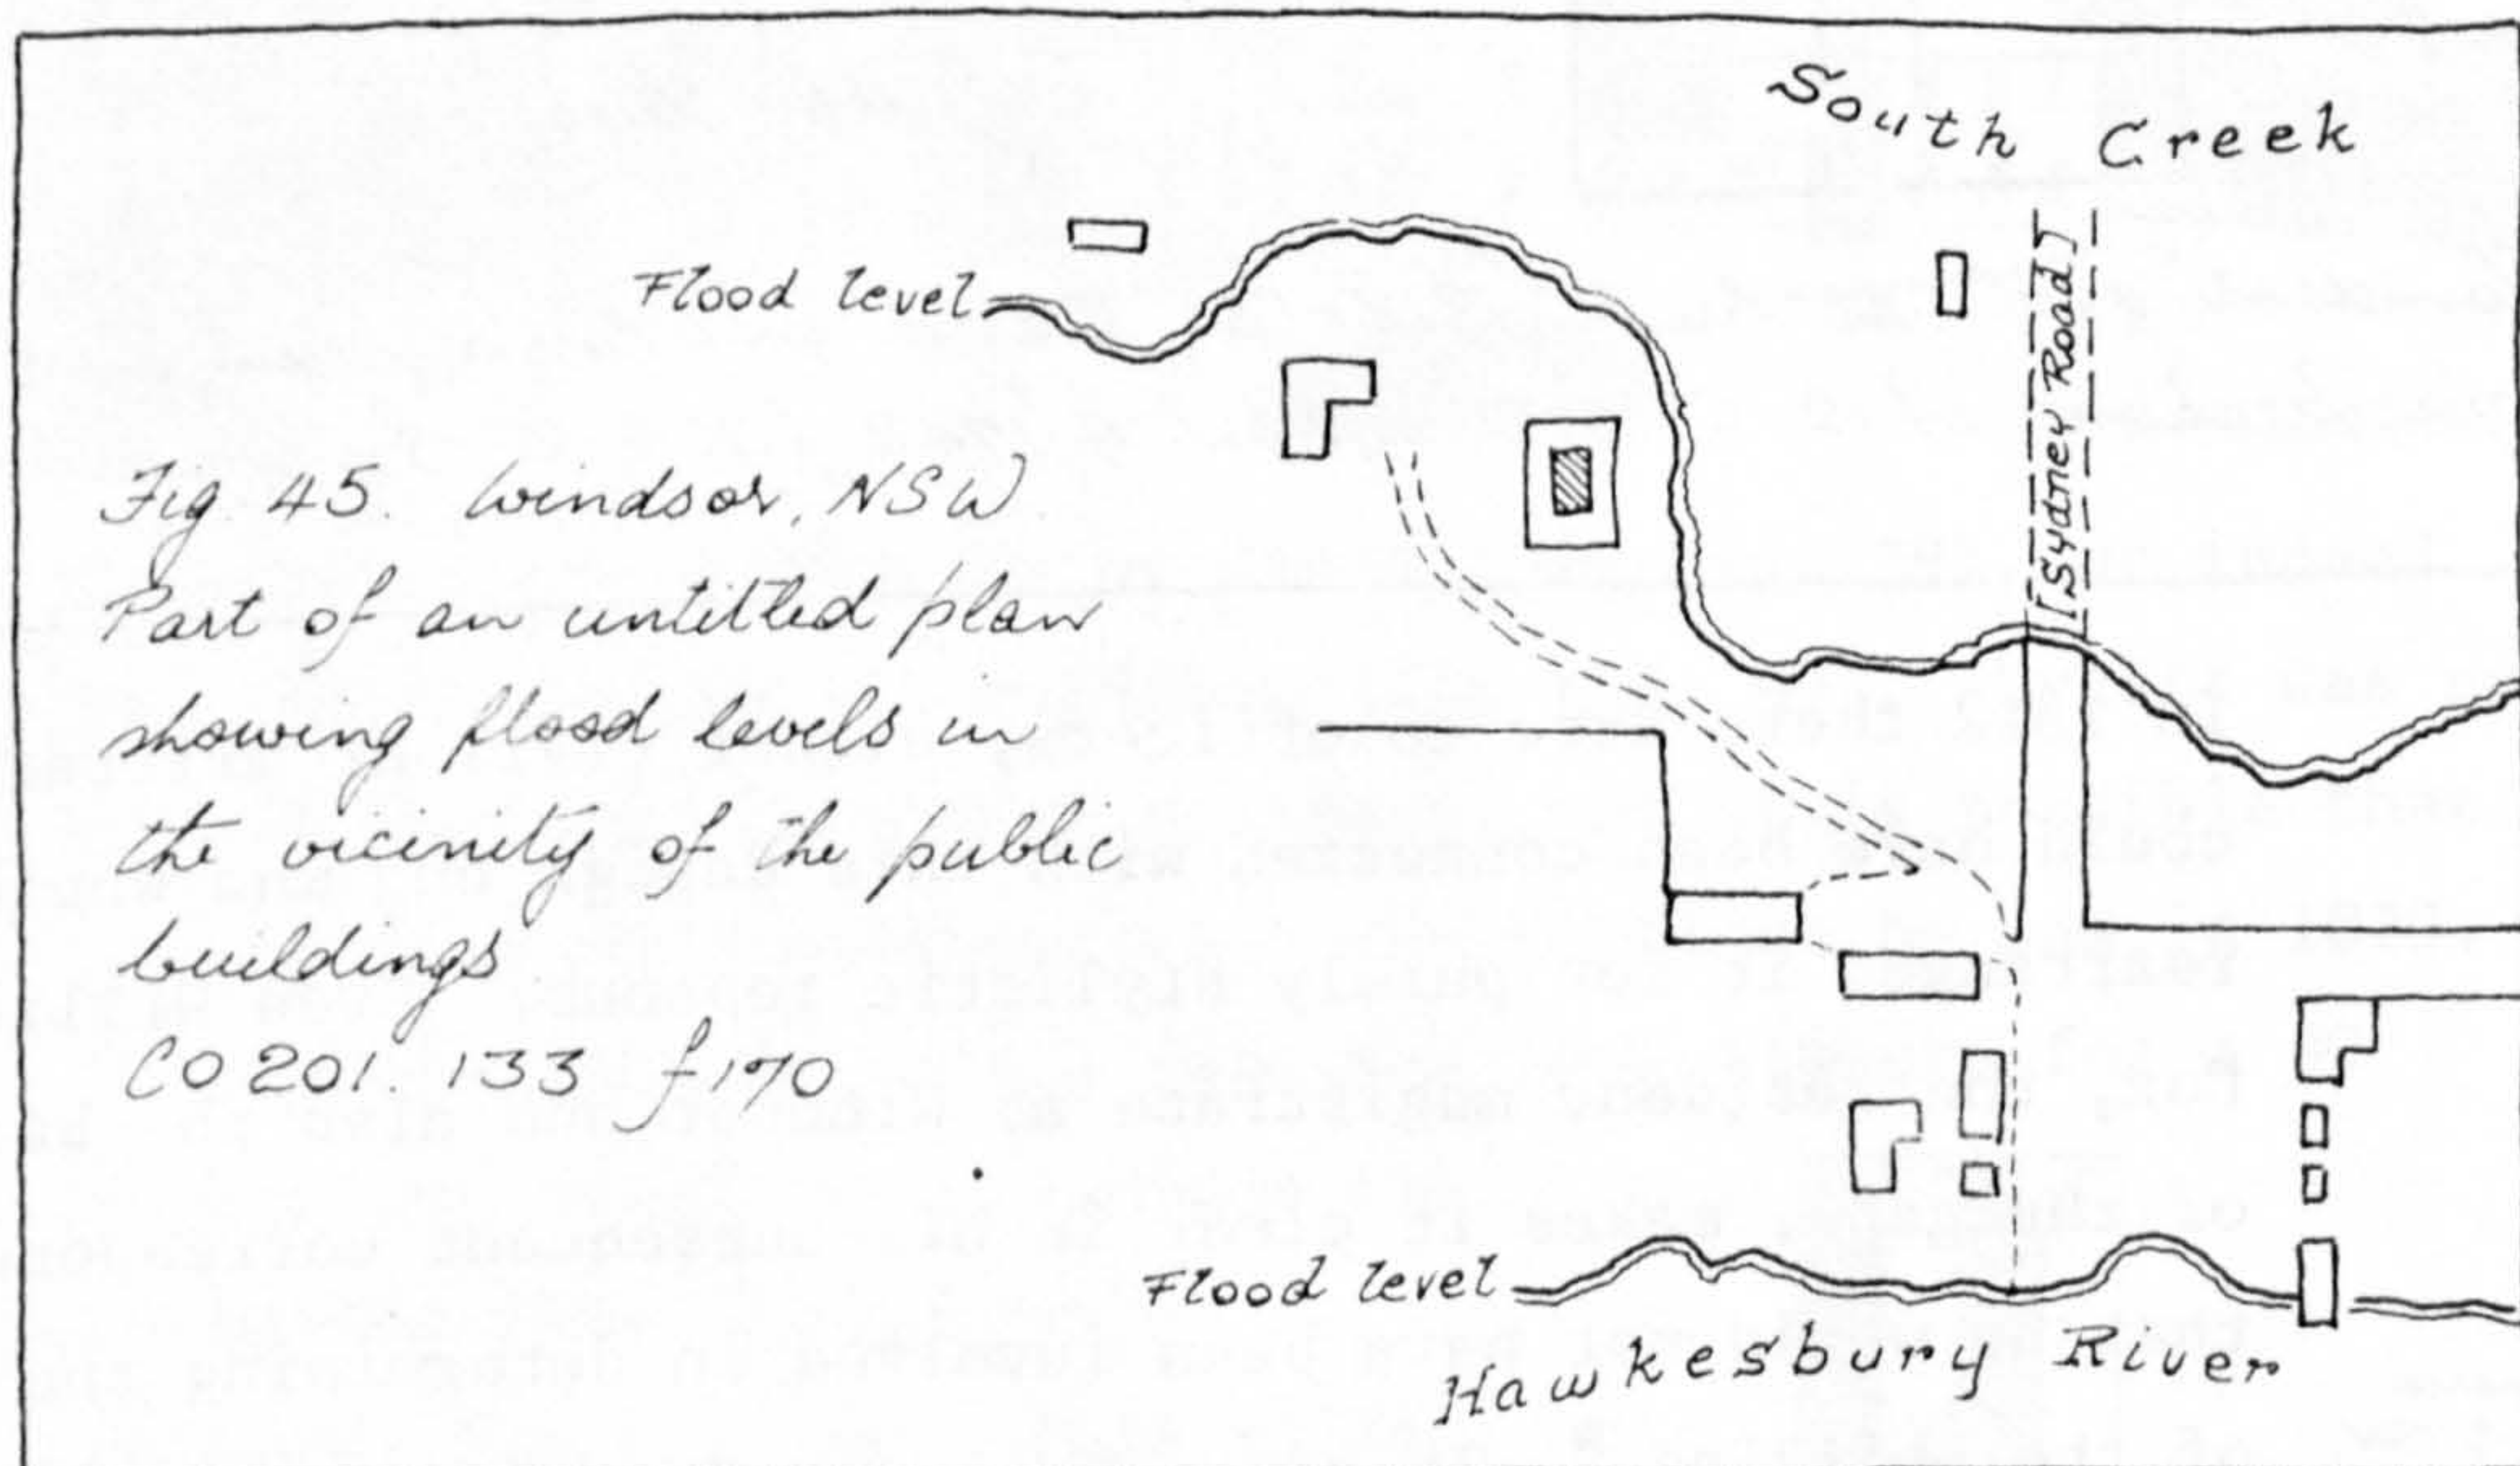 South Creek
Flood level
[Sydney Road]
Fig 45. Windsor, NSW
Part of an untitled plan
showing flood levels in
the vicinity of the public
buildings
CO 201. 133 f170
Flood level
Hawkesbury River